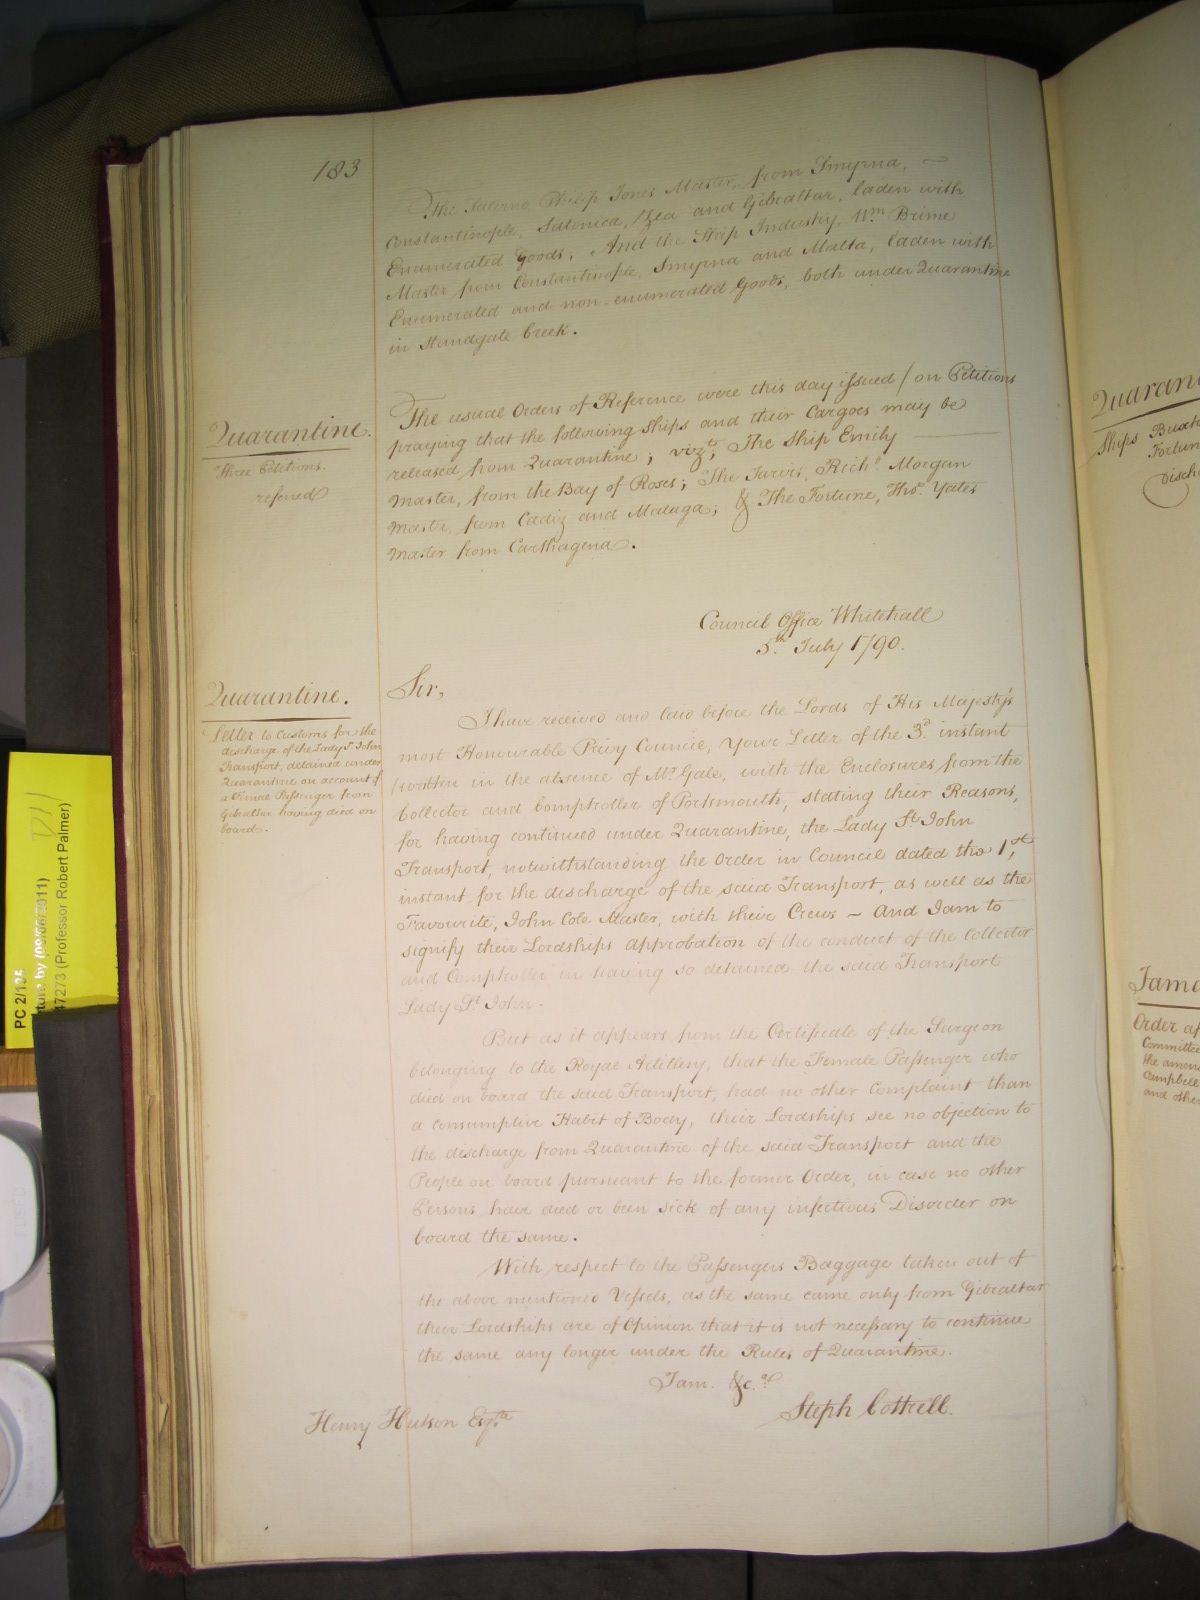 183
The Salerno Philip Jones Master, from Smyrna,
Constantinople, Salonica, Zea and Gibraltar, laden with
Enumerated Goods; And the Ship Industry, Wm Brime
Master from Constantinople, Smyrna and Malta, laden with
Enumerated and non-enumerated Goods, both under Quarantine
in Standgate Creek.
Quarantine.
Three Petitions.
referred
The usual Orders of Reference were this day issued on Petitions
praying that the following Ships and their Cargoes may be
released from Quarantine; vizt; The Ship Emily
Master, from the Bay of Roses; The Jarvis, Richd Morgan
Master, from Cadiz and Malaga; & The Fortune, Thos Yates
Master from Carthagena.
Council Office Whitehall
5th July 1790.
Quarantine.
Letter to Customs for the
discharge of the Lady St John
Transport, detained under
Quarantine on account of
a Female Passenger from
Gibraltar having died on
board.
Sir,
I have received and laid before the Lords of His Majesty's
most Honourable Privy Council, Your Letter of the 3d instant
(written in the absence of Mr Gale, with the Enclosures from the
Collector and Comptroller of Portsmouth, stating their Reasons,
for having continued under Quarantine, the Lady St John
Transport, notwithstanding the Order in Council dated the 1st
instant for the discharge of the said Transport, as well as the
Favourite, John Cole Master, with their Crews – And I am to
signify their Lordships approbation of the conduct of the Collector
and Comptroller in having so detained the said Transport
Lady St John.
But as it appears from the Certificate of the Surgeon
belonging to the Royal Artillery, that the Female Passenger who
died on board the said Transport, had no other Complaint than
a consumptive Habit of Body, their Lordships see no objection to
the discharge from Quarantine of the said Transport and the
People on board pursuant to the former Order, in case no other
Persons have died or been sick of any infectious Disorder on
board the same.
With respect to the Passengers Baggage taken out of
the above mentioned Vessels, as the same came only from Gibraltar
their Lordships are of Opinion that it is not necessary to continue
the same any longer under the Rules of Quarantine.
I am &ca
Steph Cottrell.
Henry Hutson Esqre
Quaran
Ships
Fortun
Disch
Jama
Order of
Committee
the amen
Campbell
and other
PC 2/135
(09/06/2011)
47273 (Professor Robert Palmer)